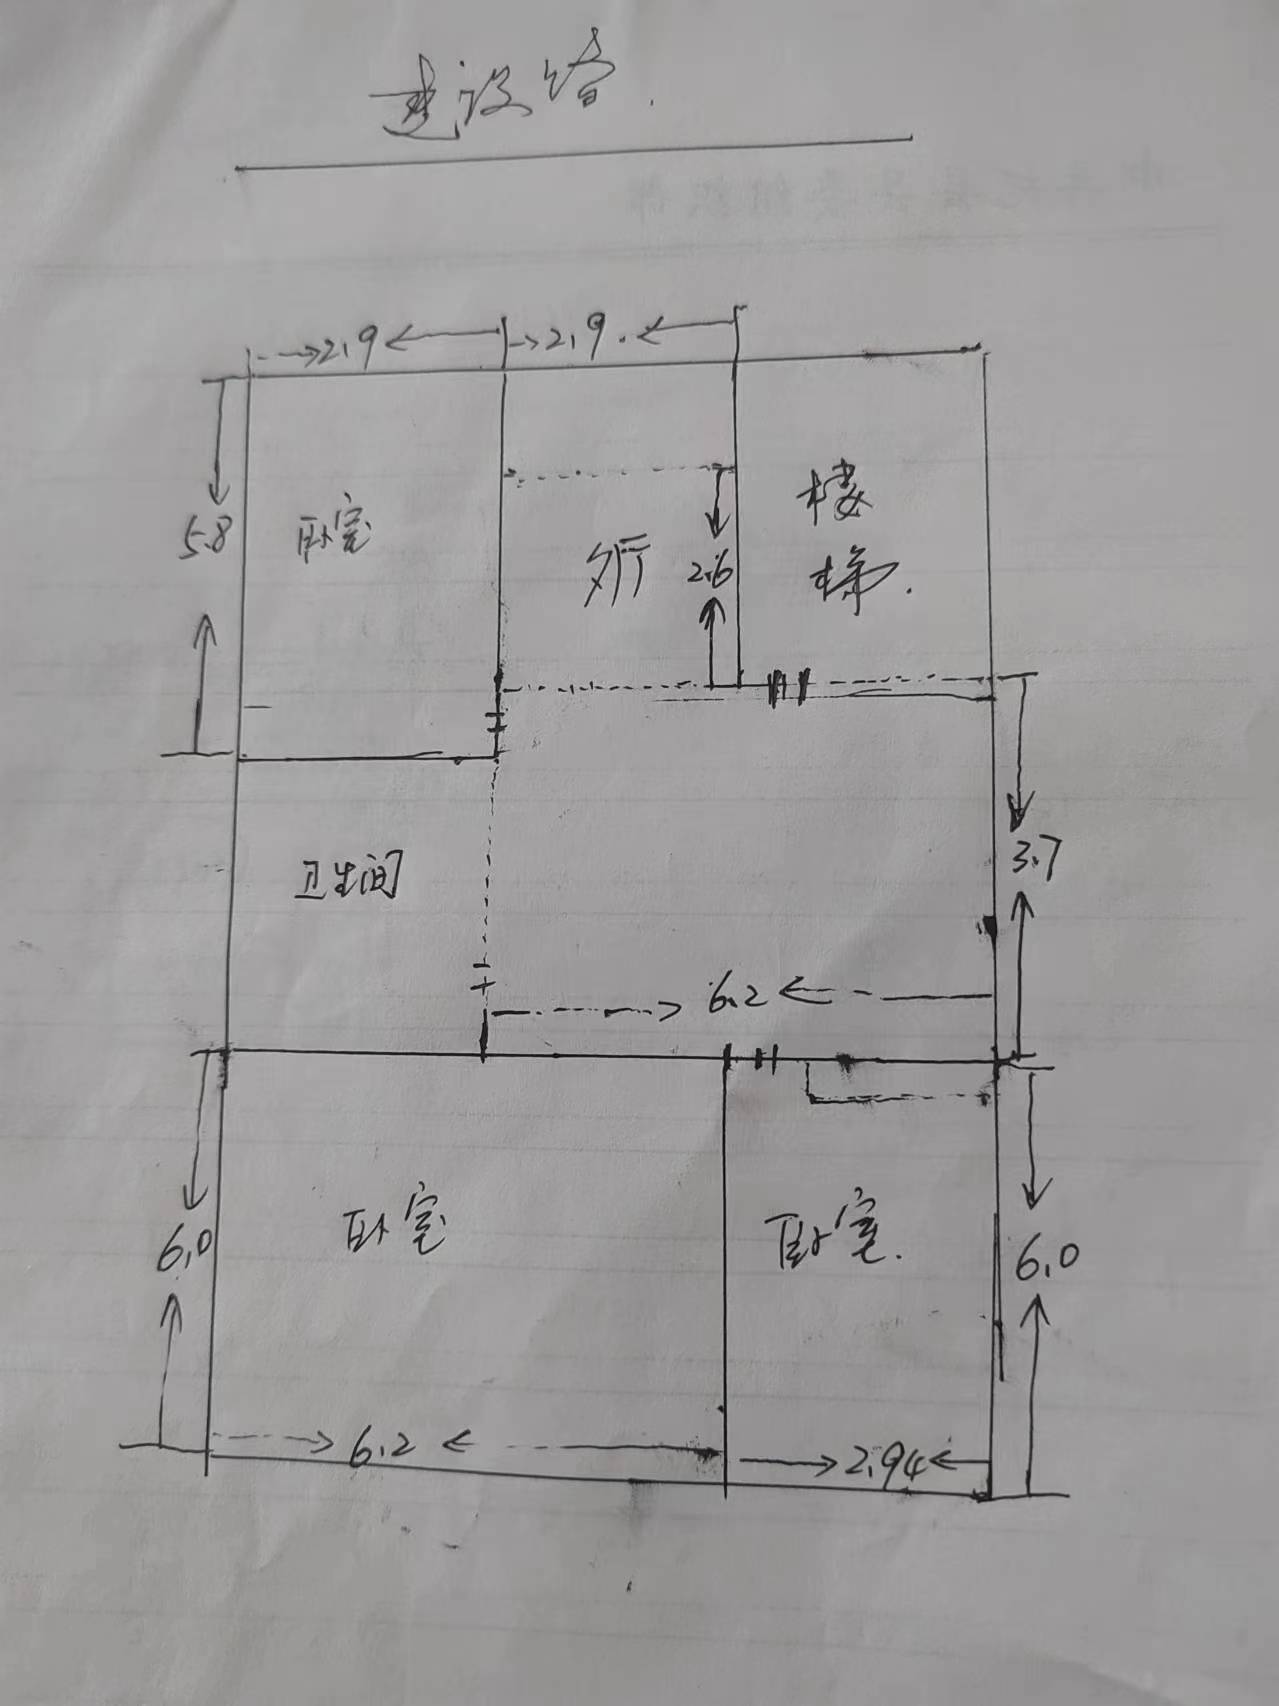 建设路.
2.9
2.9.
5.8
卧室
厅
2.6
楼
梯.
卫生间
3.7
6.2
卧室
卧室.
6.0
6.0
6.2
2.94